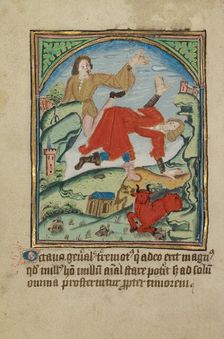 Octauꝰ gen̄al' tremotꝰ q̄ adeo erit magnꝰ
qd nullꝰ hō nullū aīal stare potit ß ad solū
omnia prosternentur ꝓpter timorem